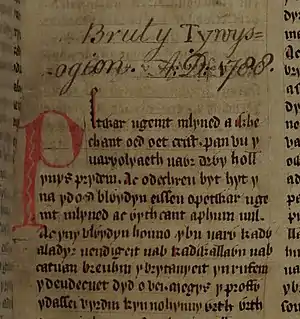 Brut y Tywys=
ogion. A.D. 1788.
Petwar ugeint mlyned a
chant oed oet crist, pan vu y
uarvolyaeth uawr drwy holl
ynys prydein. Ac odechreu byt hyt y
na ydoed blwydyn eissieu opetwar uge
int mlyned ac wyth cant aphum mil.
Ac yny blwydyn honno y bu uarw kadw
aladyr uendigeit uab kadwallawn uab
catuan brenhin y brytanyeit yn rufein
y deudecuet dyd o vei. megys y proffw
ydassei vyrdin kyn nohynny wrth